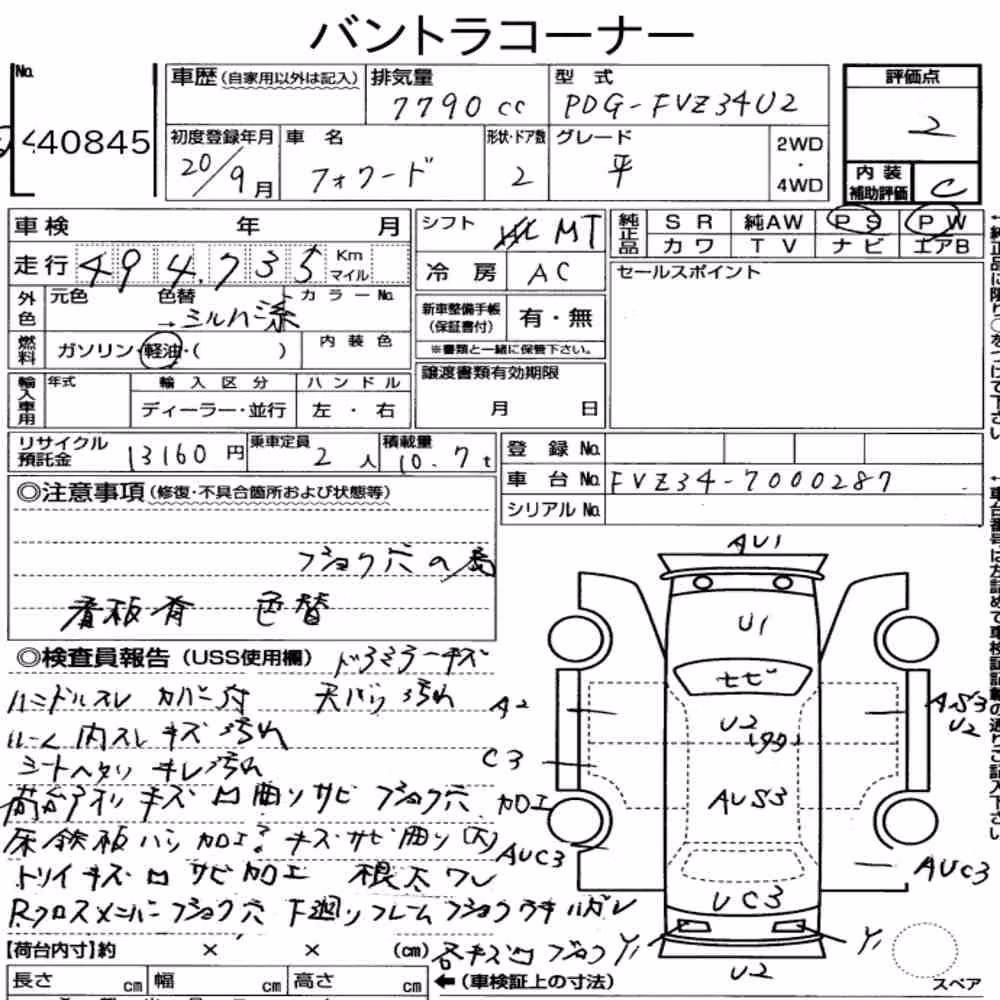 バントラコーナー
No. 40845
車歴(自家用以外は記入) 排気量 7790cc 型式 PDG-FVZ34U2 評価点 2
初度登録年月 20/9月 車名 フォワード 形状・ドア数 2 グレード 平 2WD・4WD 内装補助評価 C
車検 年 月 シフト MT 純正品 SR 純AW PS PW
カワ TV ナビ エアB
走行 494,735 Km マイル 冷房 AC セールスポイント
外色 元色 色替 カラーNo.
→ミルハ゛ 系
新車整備手帳(保証書付) 有・無
※書類と一緒に保管下さい。
燃料 ガソリン・軽油・( ) 内装色
輸入車用 年式 輸入区分 ハンドル 譲渡書類有効期限
ディーラー・並行 左・右 月 日
リサイクル預託金 13160円 乗車定員 2人 積載量 10.7t
登録No.
車台No. FVZ34-7000287
シリアルNo.
◎注意事項(修復・不具合箇所および状態等)
フショク穴の為
看板有 色替
◎検査員報告(USS使用欄) ドアミラーキズ
ハンドルスレ カバー付 天バリ汚れ
ルーム内スレキズ汚れ
シートヘタリ キレ汚れ
キズ凹曲リサビ フショク穴
床鉄板ハリ加工? キズサビ曲リ(大)
トリイキズ凹サビ加工 根太ワレ
Rクロスメンバーフショク穴 下廻リフレームフショクウキハガレ
各キズ凹 フショク
【荷台内寸】約 × × (cm) ←(車検証上の寸法)
長さ cm 幅 cm 高さ cm
AU1
U1
トビ
A2
U2
AS3
U2
C3
AUS3
加工
AUC3
AUC3
UC3
Y1
Y1
U2
スペア